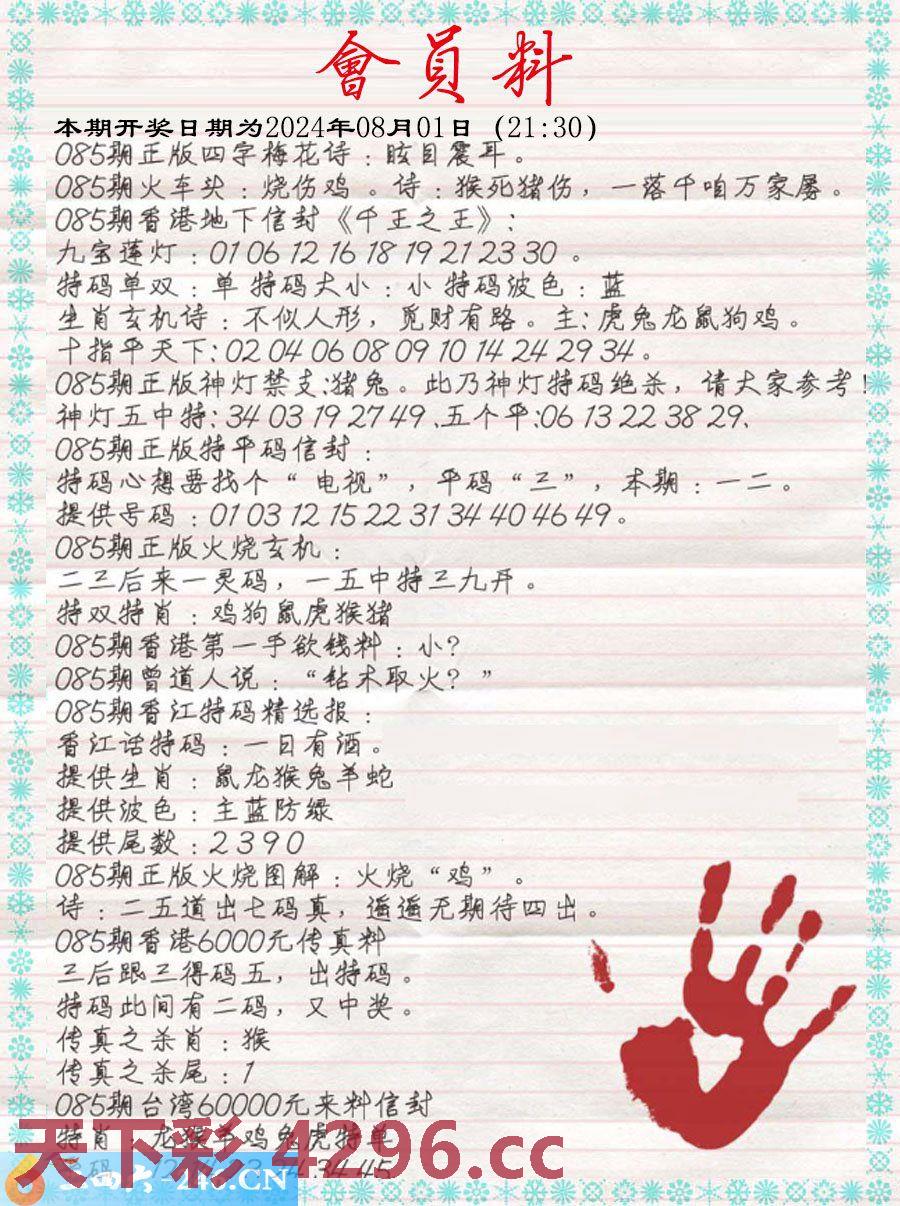 會員料
本期开奖日期为2024年08月01日 (21:30)
085期正版四字梅花诗：眩目震耳。
085期火车头：烧伤鸡 。诗：猴死猪伤，一落千咱万家屡 。
085期香港地下信封《千王之王》：
九宝莲灯：01 06 12 16 18 19 21 23 30 。
特码单双：单 特码大小：小 特码波色：蓝
生肖玄机诗：不似人形，觅财有路。主：虎兔龙鼠狗鸡。
十指平天下：02 04 06 08 09 10 14 24 29 34 。
085期正版神灯禁支：猪兔。此乃神灯特码绝杀，请大家参考！
神灯五中特：34 03 19 27 49 、五个平：06 13 22 38 29、
085期正版特平码信封：
特码心想要找个“ 电视”，平码“三”，本期：一二。
提供号码：01 03 12 15 22 31 34 40 46 49。
085期正版火烧玄机：
二三后来一灵码，一五中特三九开 。
特双特肖：鸡狗鼠虎猴猪
085期香港第一手欲钱料：小？
085期曾道人说：“钻木取火？”
085期香江特码精选报：
香江话特码：一日有酒。
提供生肖：鼠龙猴兔羊蛇
提供波色：主蓝防绿
提供尾数：2 3 9 0
085期正版火烧图解：火烧“鸡”。
诗：二五道出七码真，遥遥无期待四出。
085期香港6000元传真料
三后跟三得码五，出特码。
特码此间有二码，又中奖。
传真之杀肖：猴
传真之杀尾：1
085期台湾60000元来料信封
特肖：龙猴羊鸡兔虎特单
34 45
天下彩 4296.cc
.CN